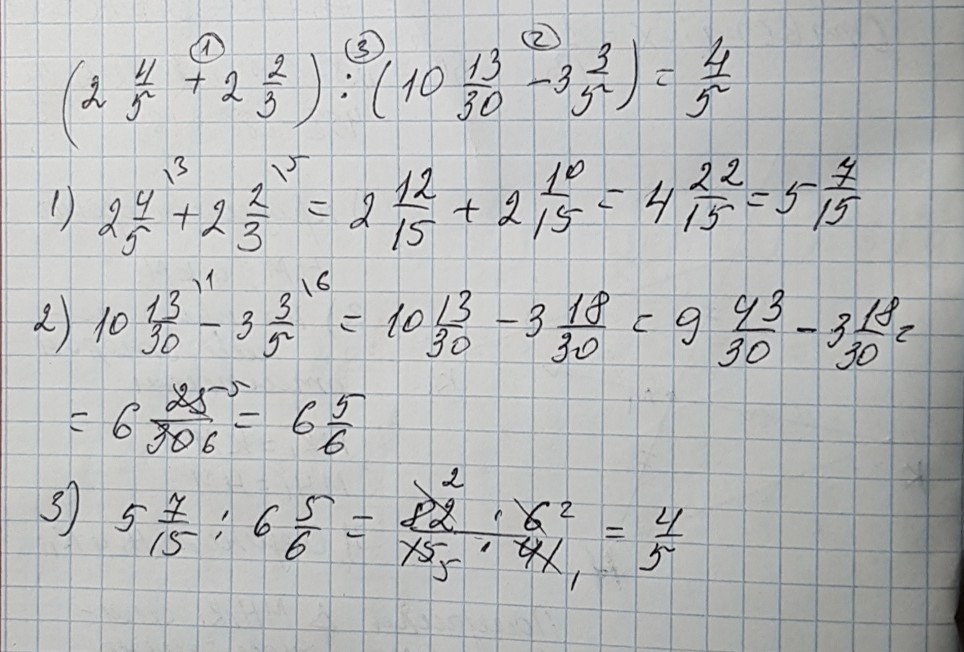 ① ③ ②
(2 4/5 + 2 2/3) : (10 13/30 - 3 3/5) = 4/5
1) 2 4/5 \3 + 2 2/3 \5 = 2 12/15 + 2 10/15 = 4 22/15 = 5 7/15
2) 10 13/30 \1 - 3 3/5 \6 = 10 13/30 - 3 18/30 = 9 43/30 - 3 18/30 =
= 6 25 5/30 6 = 6 5/6
3) 5 7/15 : 6 5/6 = 82 2/15 5 : 6 2/41 1 = 4/5